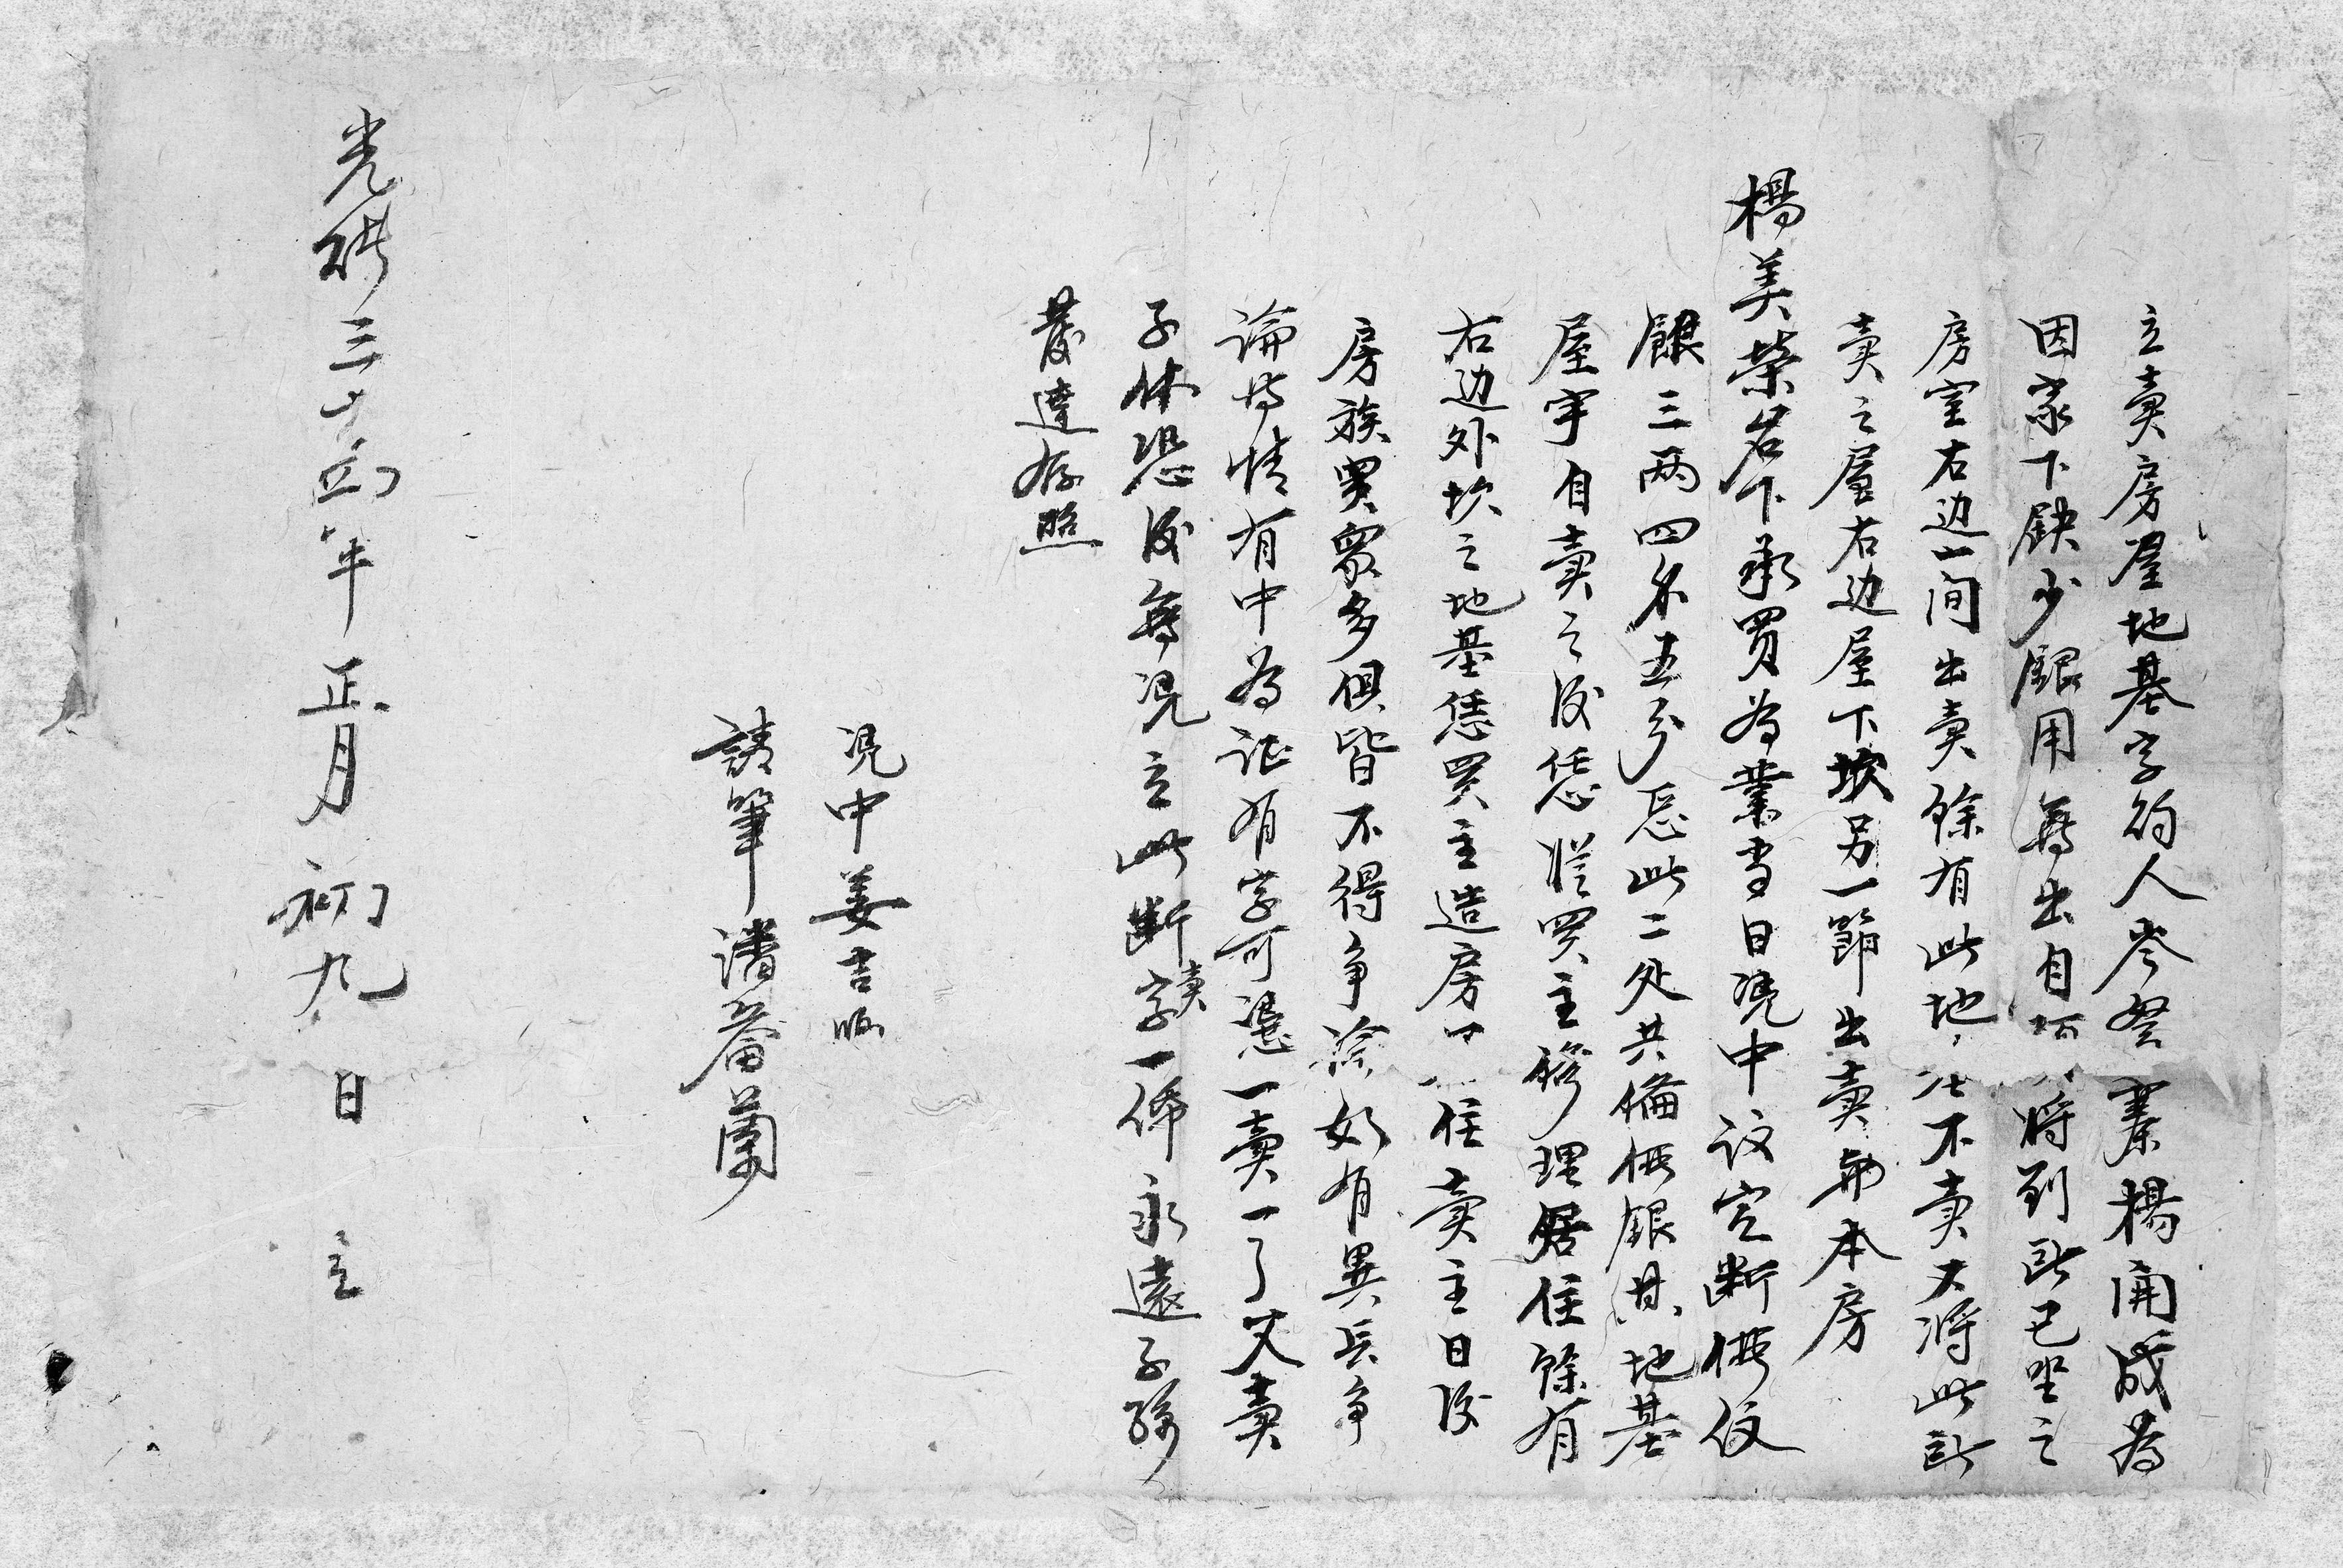 立賣房屋地基字的人岑梦寨楊開成爲
因家下缺少銀用無出自將到所己坐之
房室右边一间出賣餘有此地不賣又將此所
賣之屋右边屋下坎另一節出賣與本房
楊美榮名下承買为業当日凴中议定断價纹
銀三两四錢五分此二处共价銀其地基
屋宇自賣之後恁從買主修理居住餘有
右边外坎之地基恁買主造房住賣主日後
房族異衆多俱皆不得争論如有異言争
論持情有中为证有字可憑一賣一了父賣
子休恐後無凴立此断賣字一係永遠子孫
發達存照
凴中姜吉順
請筆潘蕃蘭
光绪三十四年正月初九日立